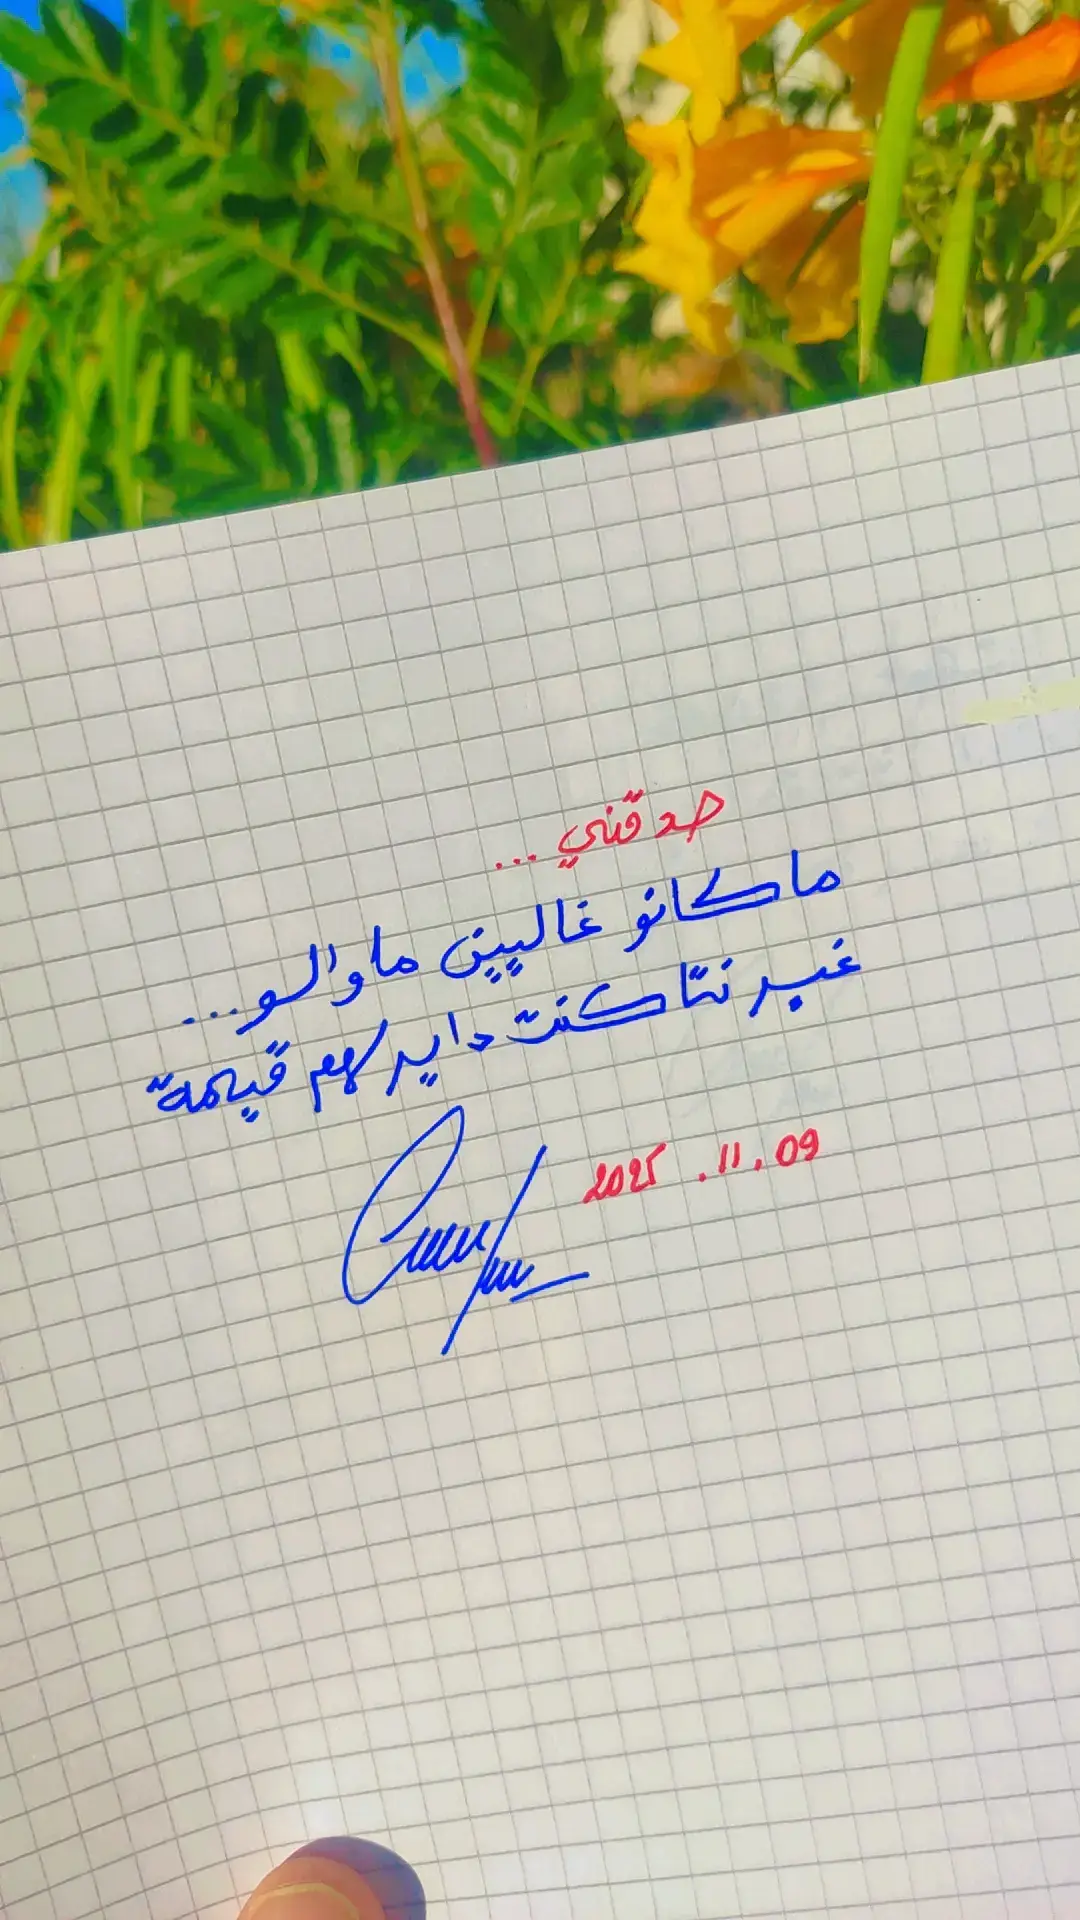 صدقني ...
ماكانو غاليين ما والو...
غير نتا كنت داير لهم قيمة
2025 . 11 . 09